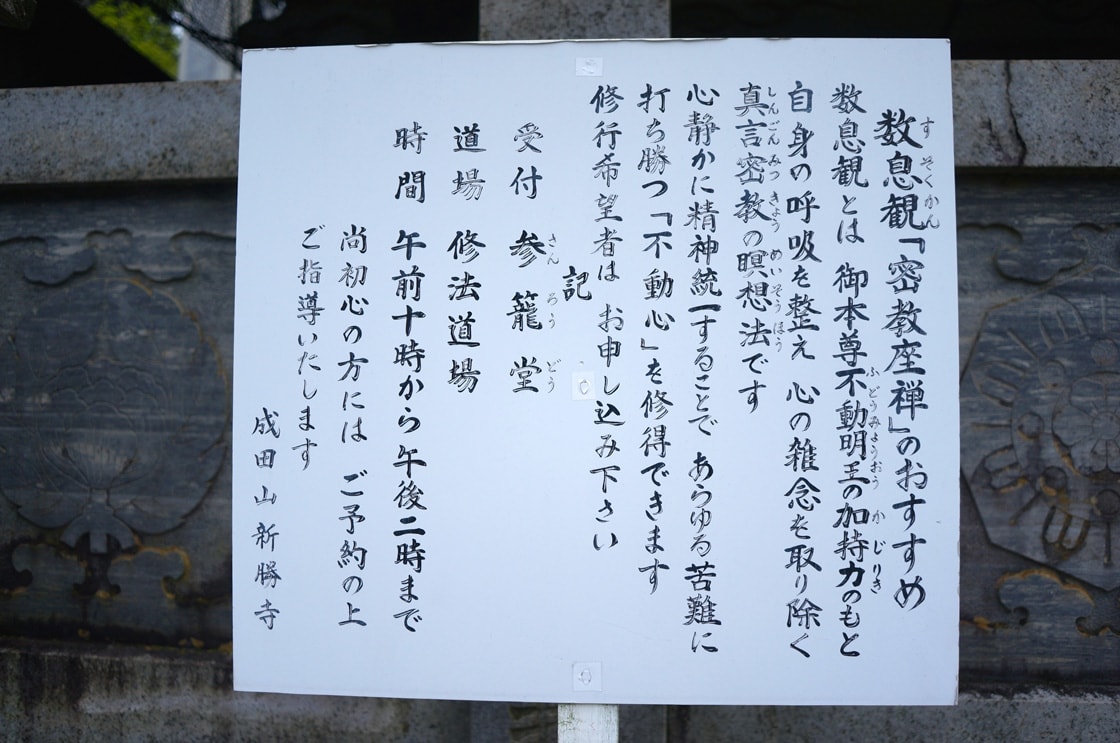 数息観「密教座禅」のおすすめ
数息観とは 御本尊不動明王の加持力のもと
自身の呼吸を整え 心の雑念を取り除く
真言密教の瞑想法です
心静かに精神統一することで あらゆる苦難に
打ち勝つ「不動心」を修得できます
修行希望者は お申し込み下さい
記
受付 参籠堂
道場 修法道場
時間 午前十時から午後二時まで
尚初心の方には ご予約の上
ご指導いたします
成田山新勝寺